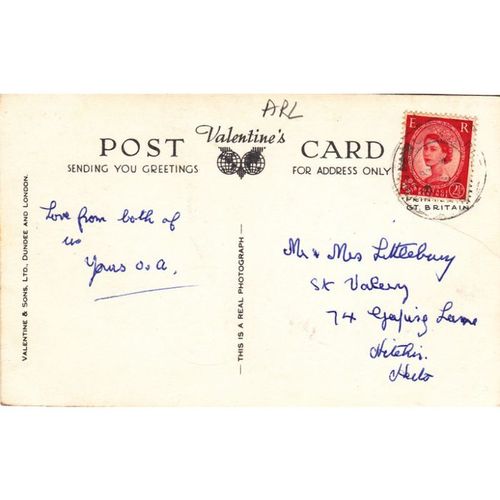 ARL
POST Valentine's CARD
SENDING YOU GREETINGS FOR ADDRESS ONLY
E R
2½ 2½
GT. BRITAIN
VALENTINE & SONS, LTD., DUNDEE AND LONDON.
Love from both of
us
Yours
— THIS IS A REAL PHOTOGRAPH —
Mr & Mrs Littlebury
St Valery
74 Gaping Lane
Hitchin.
Herts